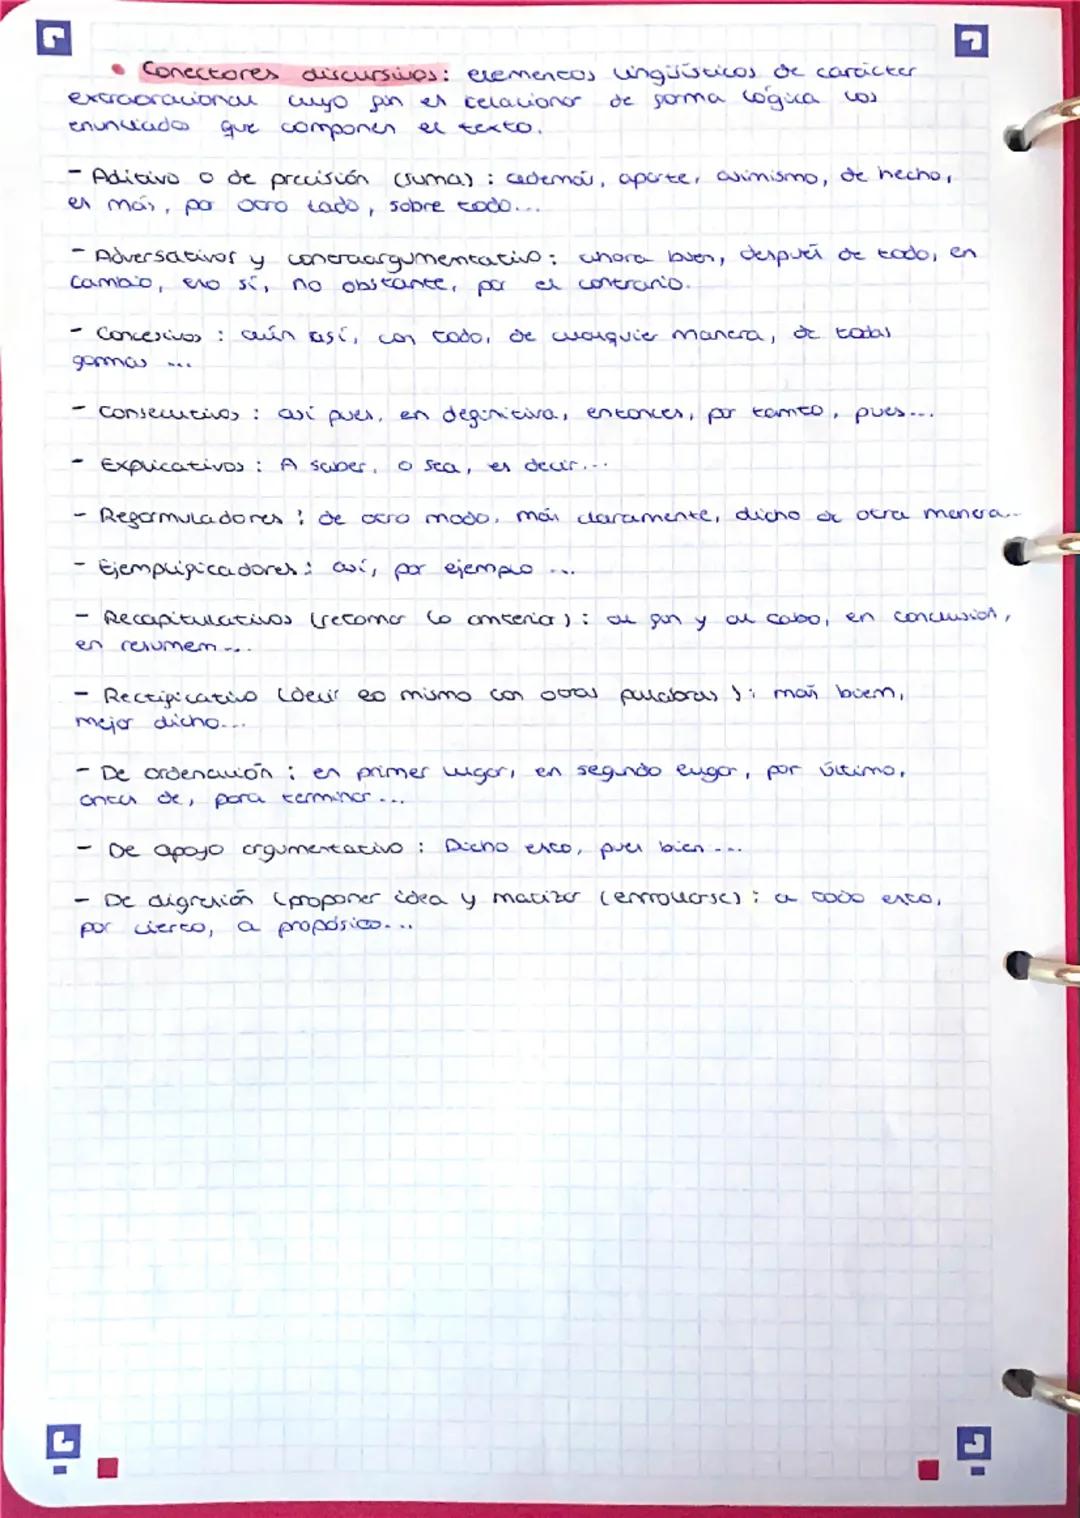 • Conectores discursivos: elementos lingüísticos de carácter
extraoracional cuyo fin es relacionar de forma lógica los
enunciados que componen el texto.
- Aditivo o de precisión (suma): además, aparte, asimismo, de hecho,
es más, por otro lado, sobre todo...
- Adversativos y contraargumentativo: ahora bien, después de todo, en
cambio, eso sí, no obstante, por el contrario.
- Concesivos: aún así, con todo, de cualquier manera, de todas
formas ...
- Consecutivos: así pues, en definitiva, entonces, por tanto, pues...
- Explicativos: A saber, o sea, es decir...
- Reformuladores: de otro modo, más claramente, dicho de otra manera...
- Ejemplificadores: así, por ejemplo ...
- Recapitulativos (retomar lo anterior): al fin y al cabo, en conclusión,
en resumen...
- Rectificativo (decir lo mismo con otras palabras): más bien,
mejor dicho...
- De ordenación: en primer lugar, en segundo lugar, por último,
antes de, para terminar...
- De apoyo argumentativo: Dicho esto, pues bien...
- De digresión (proponer idea y matizar (enrollarse): a todo esto,
por cierto, a propósito...